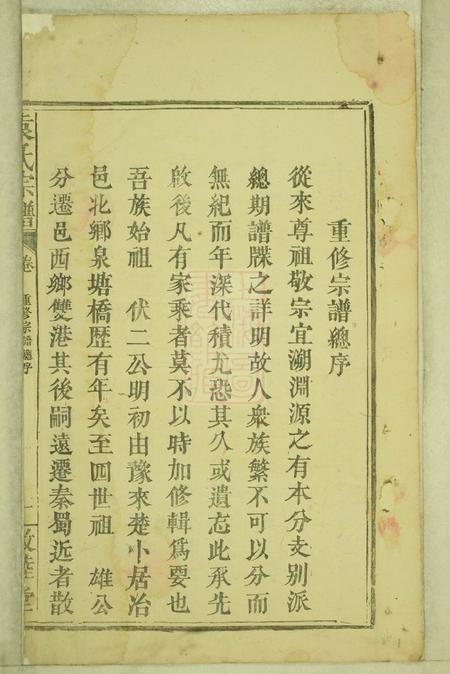 重修宗譜總序
從來尊祖敬宗宜溯淵源之有本分支別派
總期譜牒之詳明故人衆族繁不可以分而
無紀而年深代積尤恐其久或遺忘此承先
啟後凡有家乘者莫不以時加修輯爲要也
吾族始祖 伏二公明初由豫來楚卜居冶
邑北鄉泉塘橋歷有年矣至四世祖 雄公
分遷邑西鄉雙港其後嗣遠遷秦蜀近者散
袁氏宗譜 卷 重修宗譜總序 一